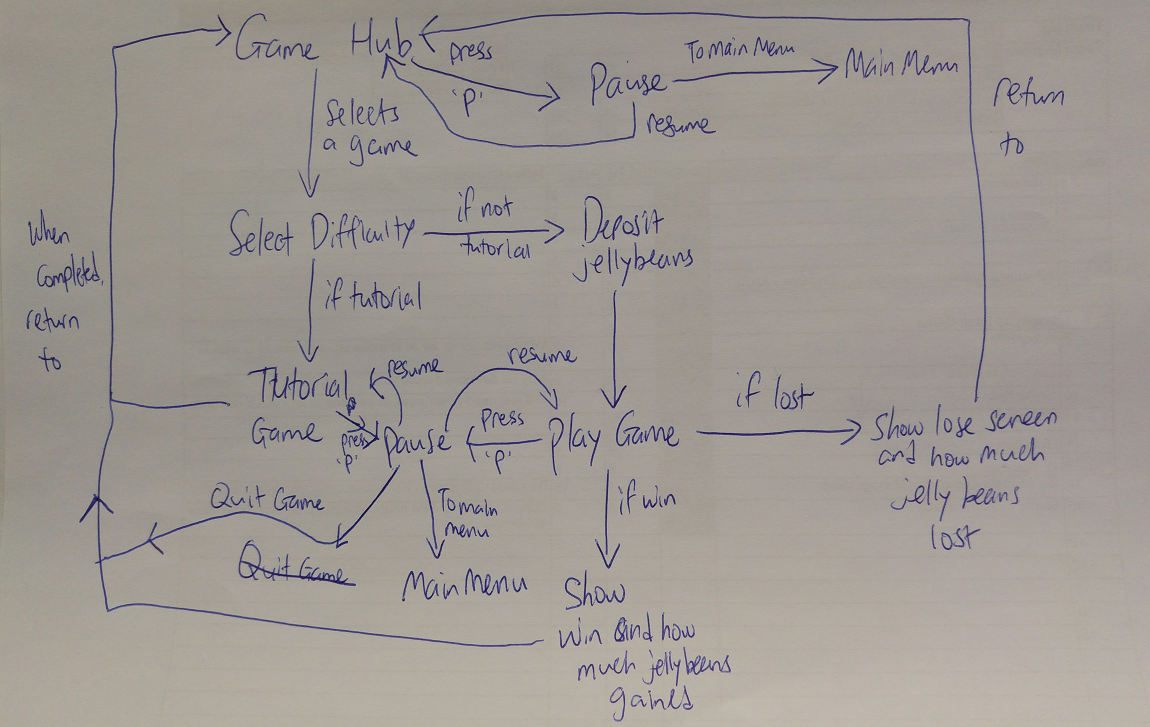 Game Hub
press
'P'
Pause
To main Menu
Main Menu
resume
return
to
Selects
a game
Select Difficulty
if not
tutorial
Deposit
jellybeans
When
completed,
return
to
if tutorial
Tutorial
Game
resume
press
'P'
Pause
resume
Press
'P'
Play Game
if lost
Show lose screen
and how much
jelly beans
lost
Quit Game
Quit Game
To main
menu
Main Menu
if win
Show
win and how
much jellybeans
gained